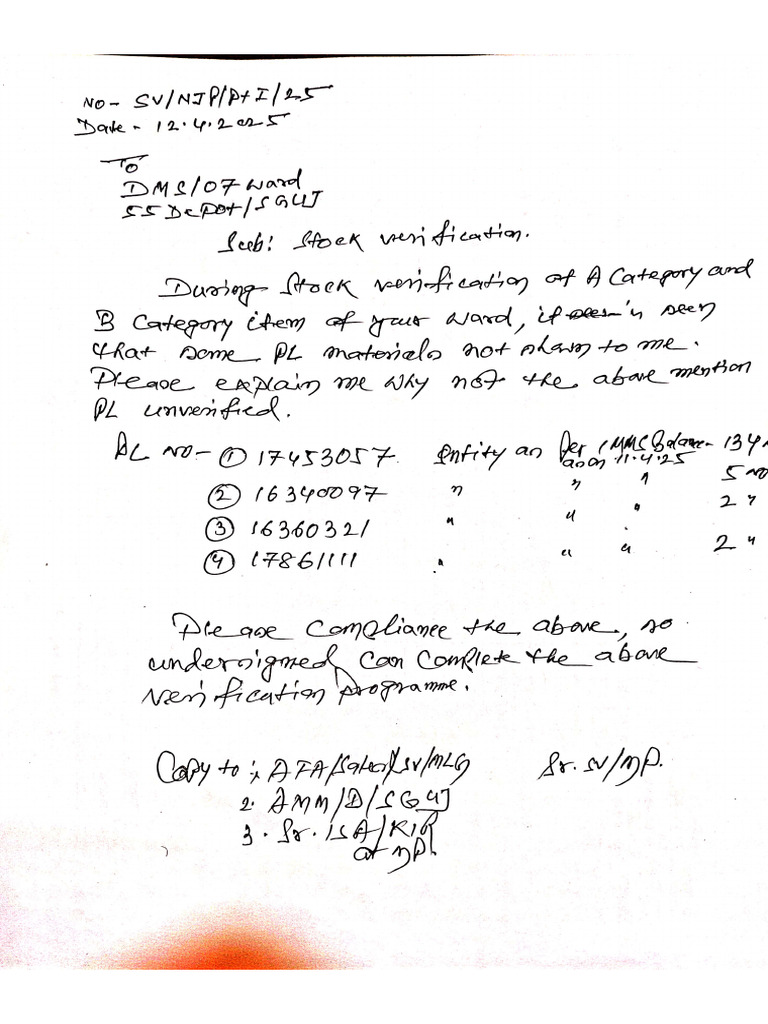 No- SV/NJP/Pt I/25
Date- 12.4.2025
To
DMS/07 Ward
SS Depot/SGUJ
Sub: Stock verification.
During Stock verification of A Category and
B Category item of your ward, it is seen
that some PL materials not shown to me.
Please explain me why not the above mention
PL unverified.
PL No- ① 17453057 Entity as Per IMMS Balance- 134
as on 11.4.25
② 16340097 " " " 5 No
③ 16360321 " " " 2 "
④ 17861111 " " " 2 "
Please Compliance the above, so
undersigned can complete the above
verification programme.
Copy to:, AFA/Sales/SV/MLG Sr. SV/NJP.
2. AMM/D/SGUJ
3. Sr. ISA/KIR
at NJP.